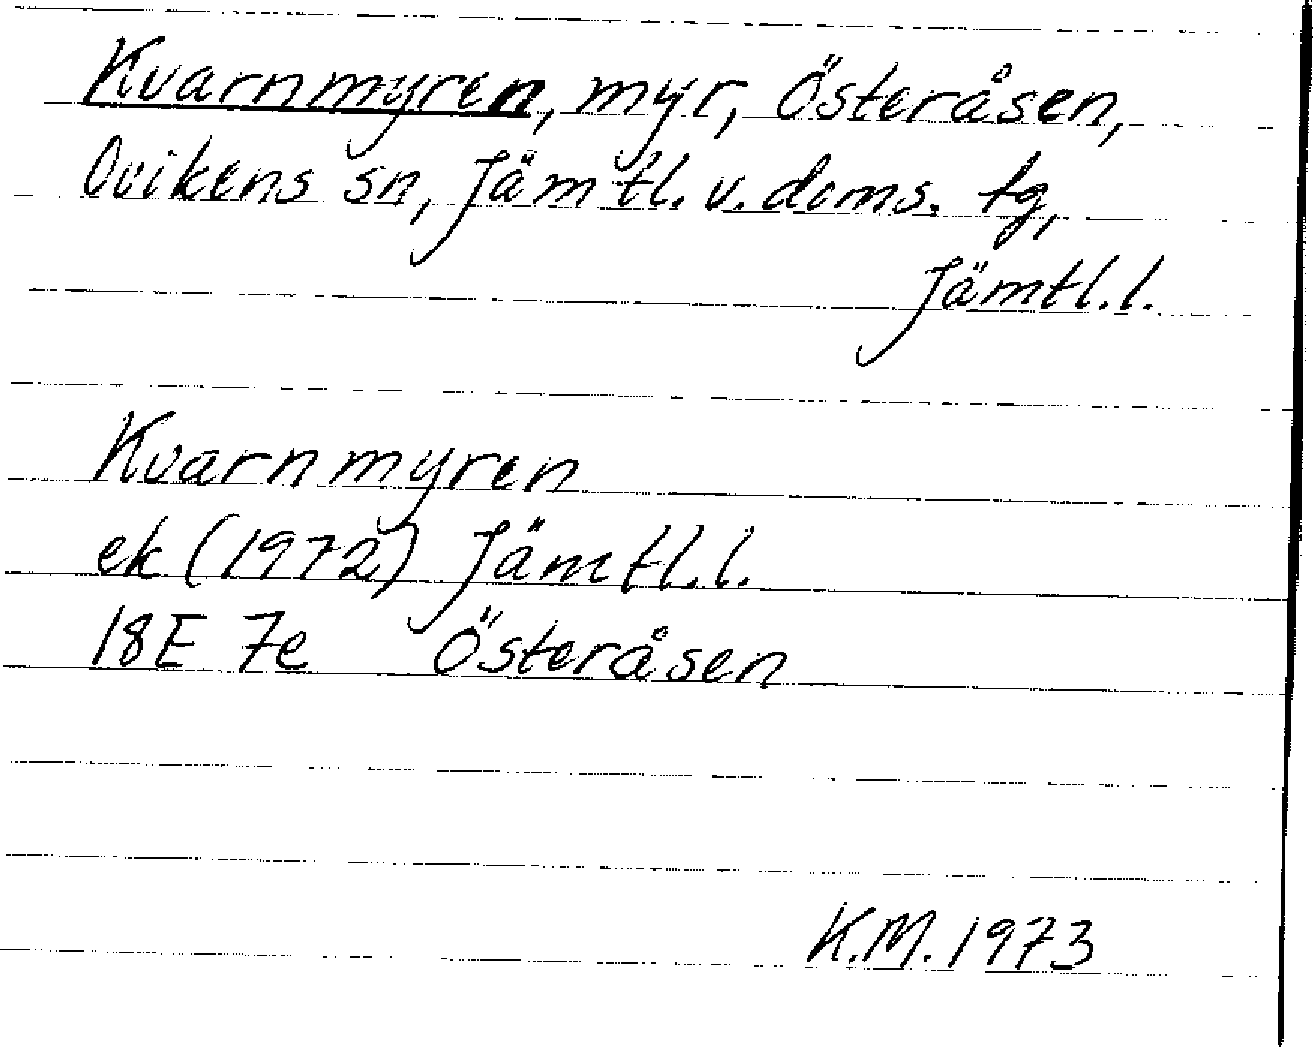 Kvarnmyren, myr, Österåsen,
Ovikens sn, Jämtl. v. doms. tg,
Jämtl.l.
Kvarnmyren
ek (1972) Jämtl.l.
18E 7e Österåsen
K.M. 1973